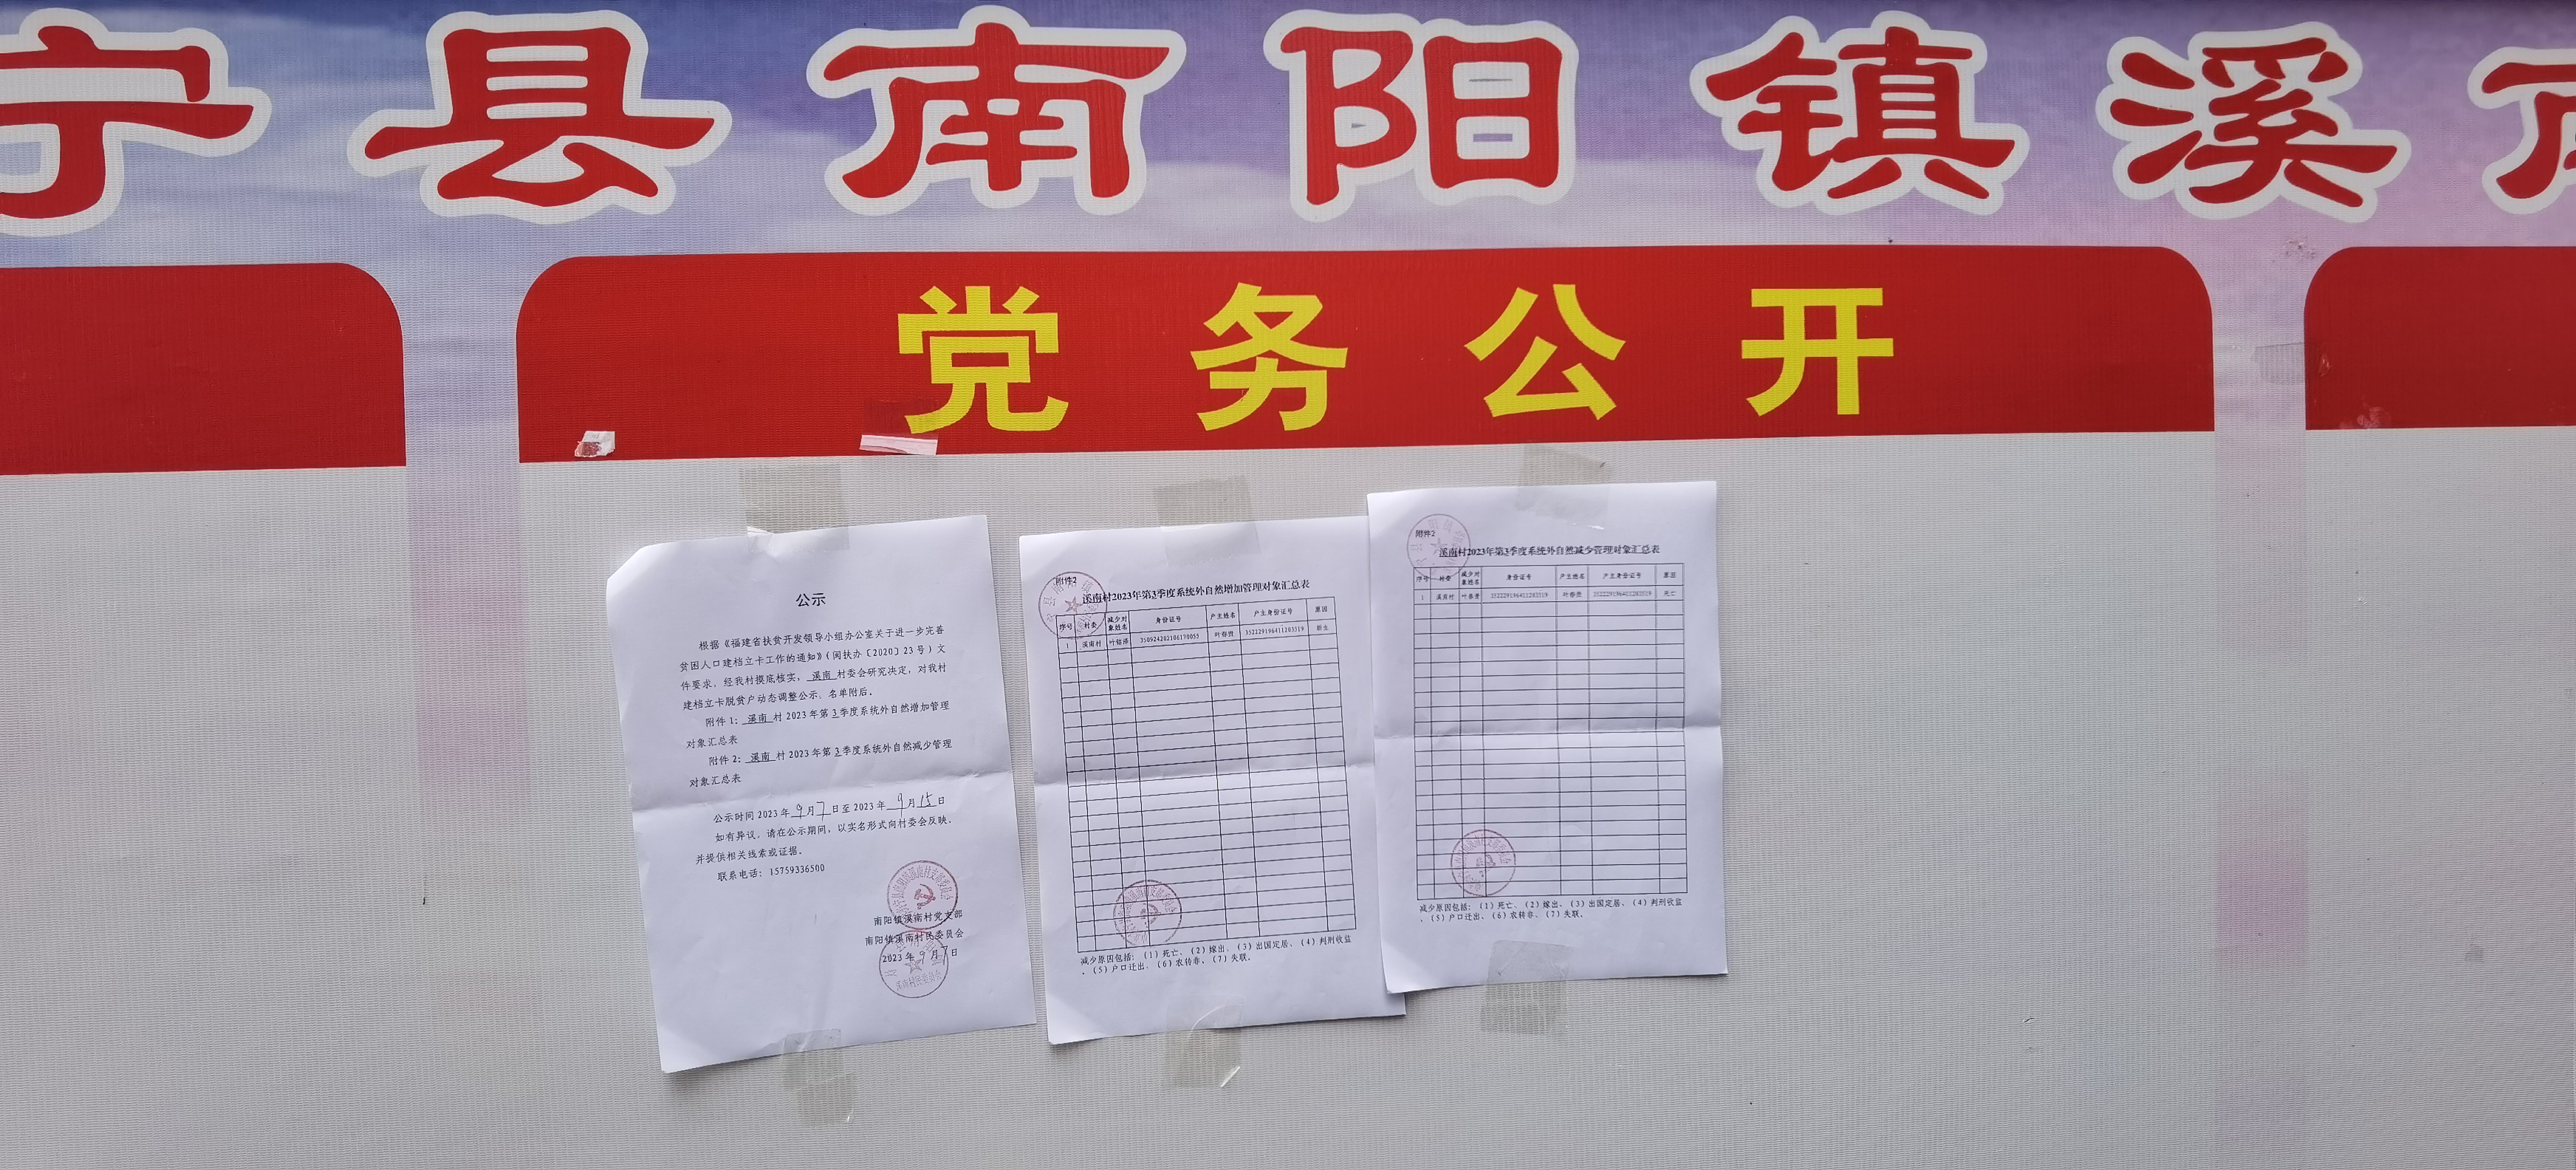 宁县南阳镇溪南
党务公开
公示
根据《福建省扶贫开发领导小组办公室关于进一步完善
贫困人口建档立卡工作的通知》(闽扶办〔2020〕23号)文
件要求，经我村摸底核实，溪南村委会研究决定，对我村
建档立卡脱贫户动态调整公示、名单附后。
附件1：溪南村2023年第3季度系统外自然增加管理
对象汇总表
附件2：溪南村2023年第3季度系统外自然减少管理
对象汇总表
公示时间2023年9月7日至2023年9月15日
如有异议，请在公示期间，以实名形式向村委会反映，
并提供相关线索或证据。
联系电话：15759336500
南阳镇溪南村党支部
南阳镇溪南村民委员会
2023年9月7日
溪南村民委员会
附件2
溪南村2023年第3季度系统外自然增加管理对象汇总表
序号 村委 减少对象姓名 身份证号 户主姓名 户主身份证号 原因
1 溪南村 350924202106170055 352229196411203519 新生
减少原因包括：(1)死亡、(2)嫁出、(3)出国定居、(4)判刑收监
、(5)户口迁出、(6)农转非、(7)失联。
附件2
溪南村2023年第3季度系统外自然减少管理对象汇总表
序号 村委 减少对象姓名 身份证号 户主姓名 户主身份证号 原因
1 溪南村 352229196411203519 352229196411203519 死亡
减少原因包括：(1)死亡、(2)嫁出、(3)出国定居、(4)判刑收监
、(5)户口迁出、(6)农转非、(7)失联。